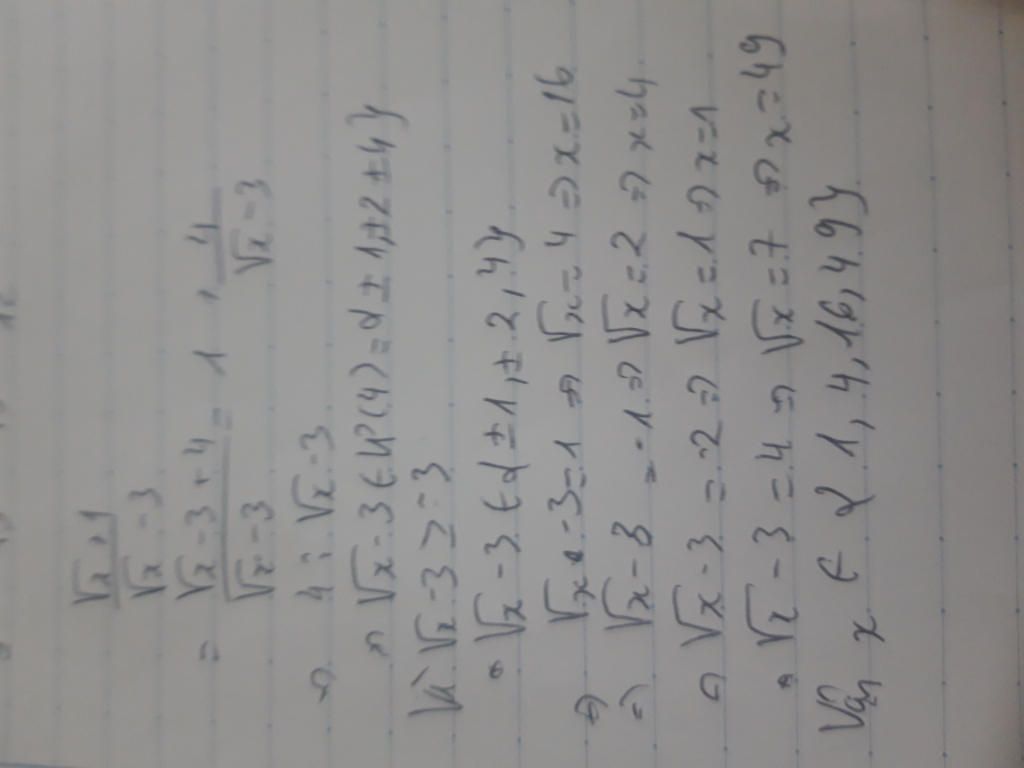 √x+1
√x-3
= √x-3+4 = 1 + 4
√x-3 √x-3
⇒ 4 ⋮ √x-3
⇒ √x-3 ∈ Ư(4) = {±1,±2±4}
Vì √x-3 ≥ -3
⇒ √x-3 ∈ {±1,±2,4}
⇒ √x-3=1 ⇒ √x=4 ⇒ x=16
⇒ √x-3 = -1 ⇒ √x=2 ⇒ x=4
⇒ √x-3 = -2 ⇒ √x=1 ⇒ x=1
⇒ √x-3=4 ⇒ √x=7 ⇒ x=49
Vậy x ∈ {1,4,16,49}